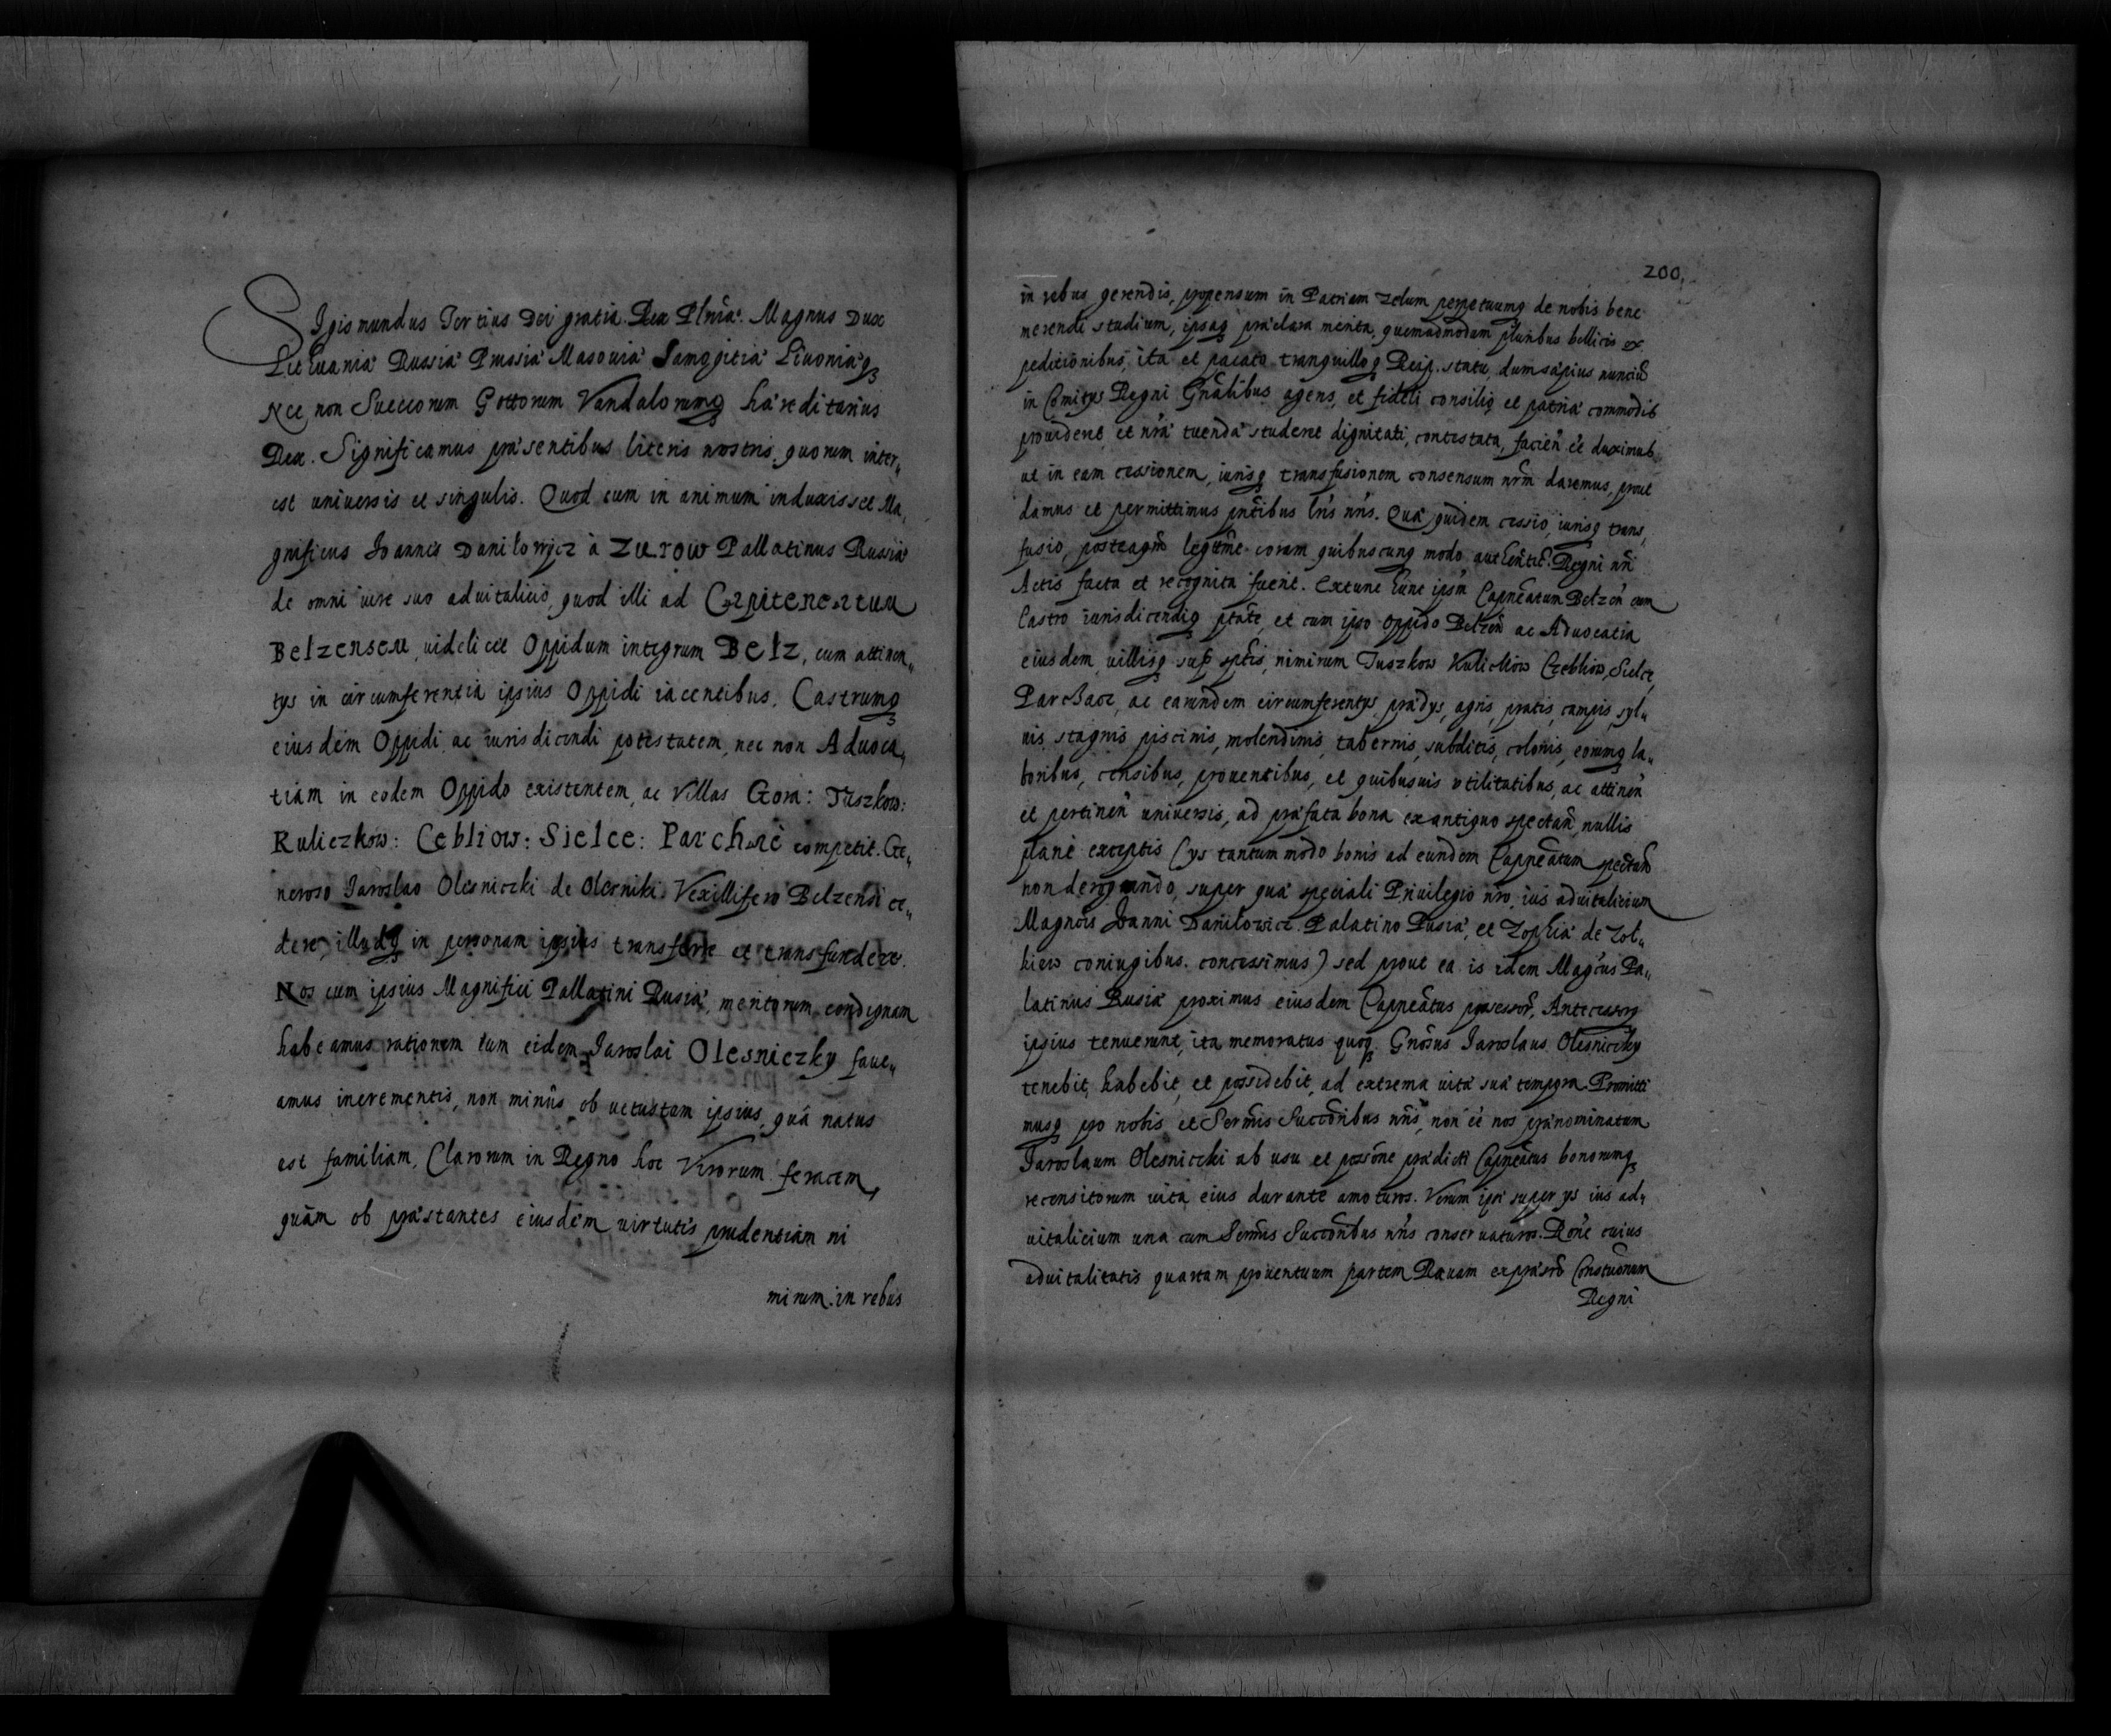 Sigismundus Tertius Dei gratia Rex Plniæ. Magnus Dux
Lithuaniæ Russiæ Prussiæ Masouiæ Samogitiæ Liuoniæq3
Nec non Sueccorum Gottorum Vandalorumq3 hæreditarius
Rex. Significamus præsentibus literis nostris quorum inter„
est uniuersis et singulis. Quod cum in animum induxisset Ma„
gnificus Joannes Daniłowicz à Zurow Pallatinus Russiæ
de omni iure suo aduitalicio, quod illi ad Capiteneatum
Belzensem, uidelicet Oppidum integrum Belz, cum attinen„
tys in circumferentia ipsius Oppidi iacentibus, Castrumq3
eiusdem Oppidi ac iurisdicendi potestatem, nec non Aduoca„
tiam in eodem Oppido existentem, ac Villas Gora: Tuszkow:
Kuliczkow: Cebliow: Sielce: Parchacè competit. Ge„
neroso Jaroslao Olesniczki de Olesniki. Vexillifero Belzensi ce„
dere, illudq3 in personam ipsius transferre et transfundere.
Nos cum ipsius Magnifici Pallatini Rusiæ, meritorum condignam
habeamus rationem tum eidem Jaroslai Olesniczky faue„
amus incrementis, non minùs ob uetustam ipsius, quá natus
est familiam, Clarorum in Regno hoc Virorum feracem,
quàm ob præstantes eiusdem uirtutis prudentiam ni
mirum in rebus
200.
in rebus gerendis, propensum in Patriam zelum perpetuumq3 de nobis bene
merendi studium, ipsaq3 præclara merita, quemadmodum pluribus bellicis ex
peditionibus, ita et pacato tranquilloq3 Reip. statu, dum sæpius nunciũ
in Comitys Regni Gñalibus agens, et fideli consilio et patriæ commodis
prouideret et nr̃æ tuendæ studeret dignitati, contestata, facieñ eẽ duximus
ut in eam cessionem, iurisq3 transfusionem consensum nrm̃ daremus, prout
damus et permittimus pñtibus lrĩs nrĩs. Quæ quidem cessio, iurisq3 trans„
fusio, posteaqm̃ legitime coram quibuscunq3 modo authentic̃. Regni nrĩ
Actis facta et recognita fuerit. Extunc hunc ipsm̃ Capneãtum Belzeñ cum
Castro iurisdicendiq3 ptãte, et cum ipso oppido Belzeñ ac Aduocatia
eiusdem, uillisq3 sup sptis, nimirum Tuszkow Kulickow Czebliow, Sielce,
Parchacz, ac earundem circumferentys prædys, agris, pratis, campis, syl„
uis, stagnis piscinis, molendinis, tabernis, subditis, colonis, eorumq3 la„
boribus, censibus, prouentibus, et quibusuis vtilitatibus, ac attineñ
et pertineñ uniuersis, ad præfata bona ex antiquo spectañ, nullis
planè exceptis (ys tantum modo bonis ad eundem Capneãtum spectañ
non derogando, super quæ speciali Priuilegio nrõ, ius aduitalicium
Magncis Joanni Daniłowicz. Palatino Rusiæ, et Zophiæ de Zol„
kiew coniugibus. concessimus) sed prout ea is idem Magcus Pa„
latinus Rusiæ proximus eiusdem Capneãtus possessor, Antecessoresq3
ipsius tenuerunt, ita memoratus quoq3 Gnõsus Jaroslaus Olesniczky
tenebit, habebit, et possidebit, ad extrema uitæ suæ tempora. Promitti
musq3 pro nobis et Sermĩs Succõribus nrĩs, non eẽ nos prænominatum
Jaroslaum Olesniczki ab usu et possõne prædicti Capneãtus bonorumq3
recensitorum uita eius durante amoturos. Verum ipsi super ys ius ad„
uitalicium una cum Sermĩs Succõribus nrĩs conseruaturos. Rõne cuius
aduitalitatis quartam prouentuum partem Rauam expræsrõ Constuõnum
Regni